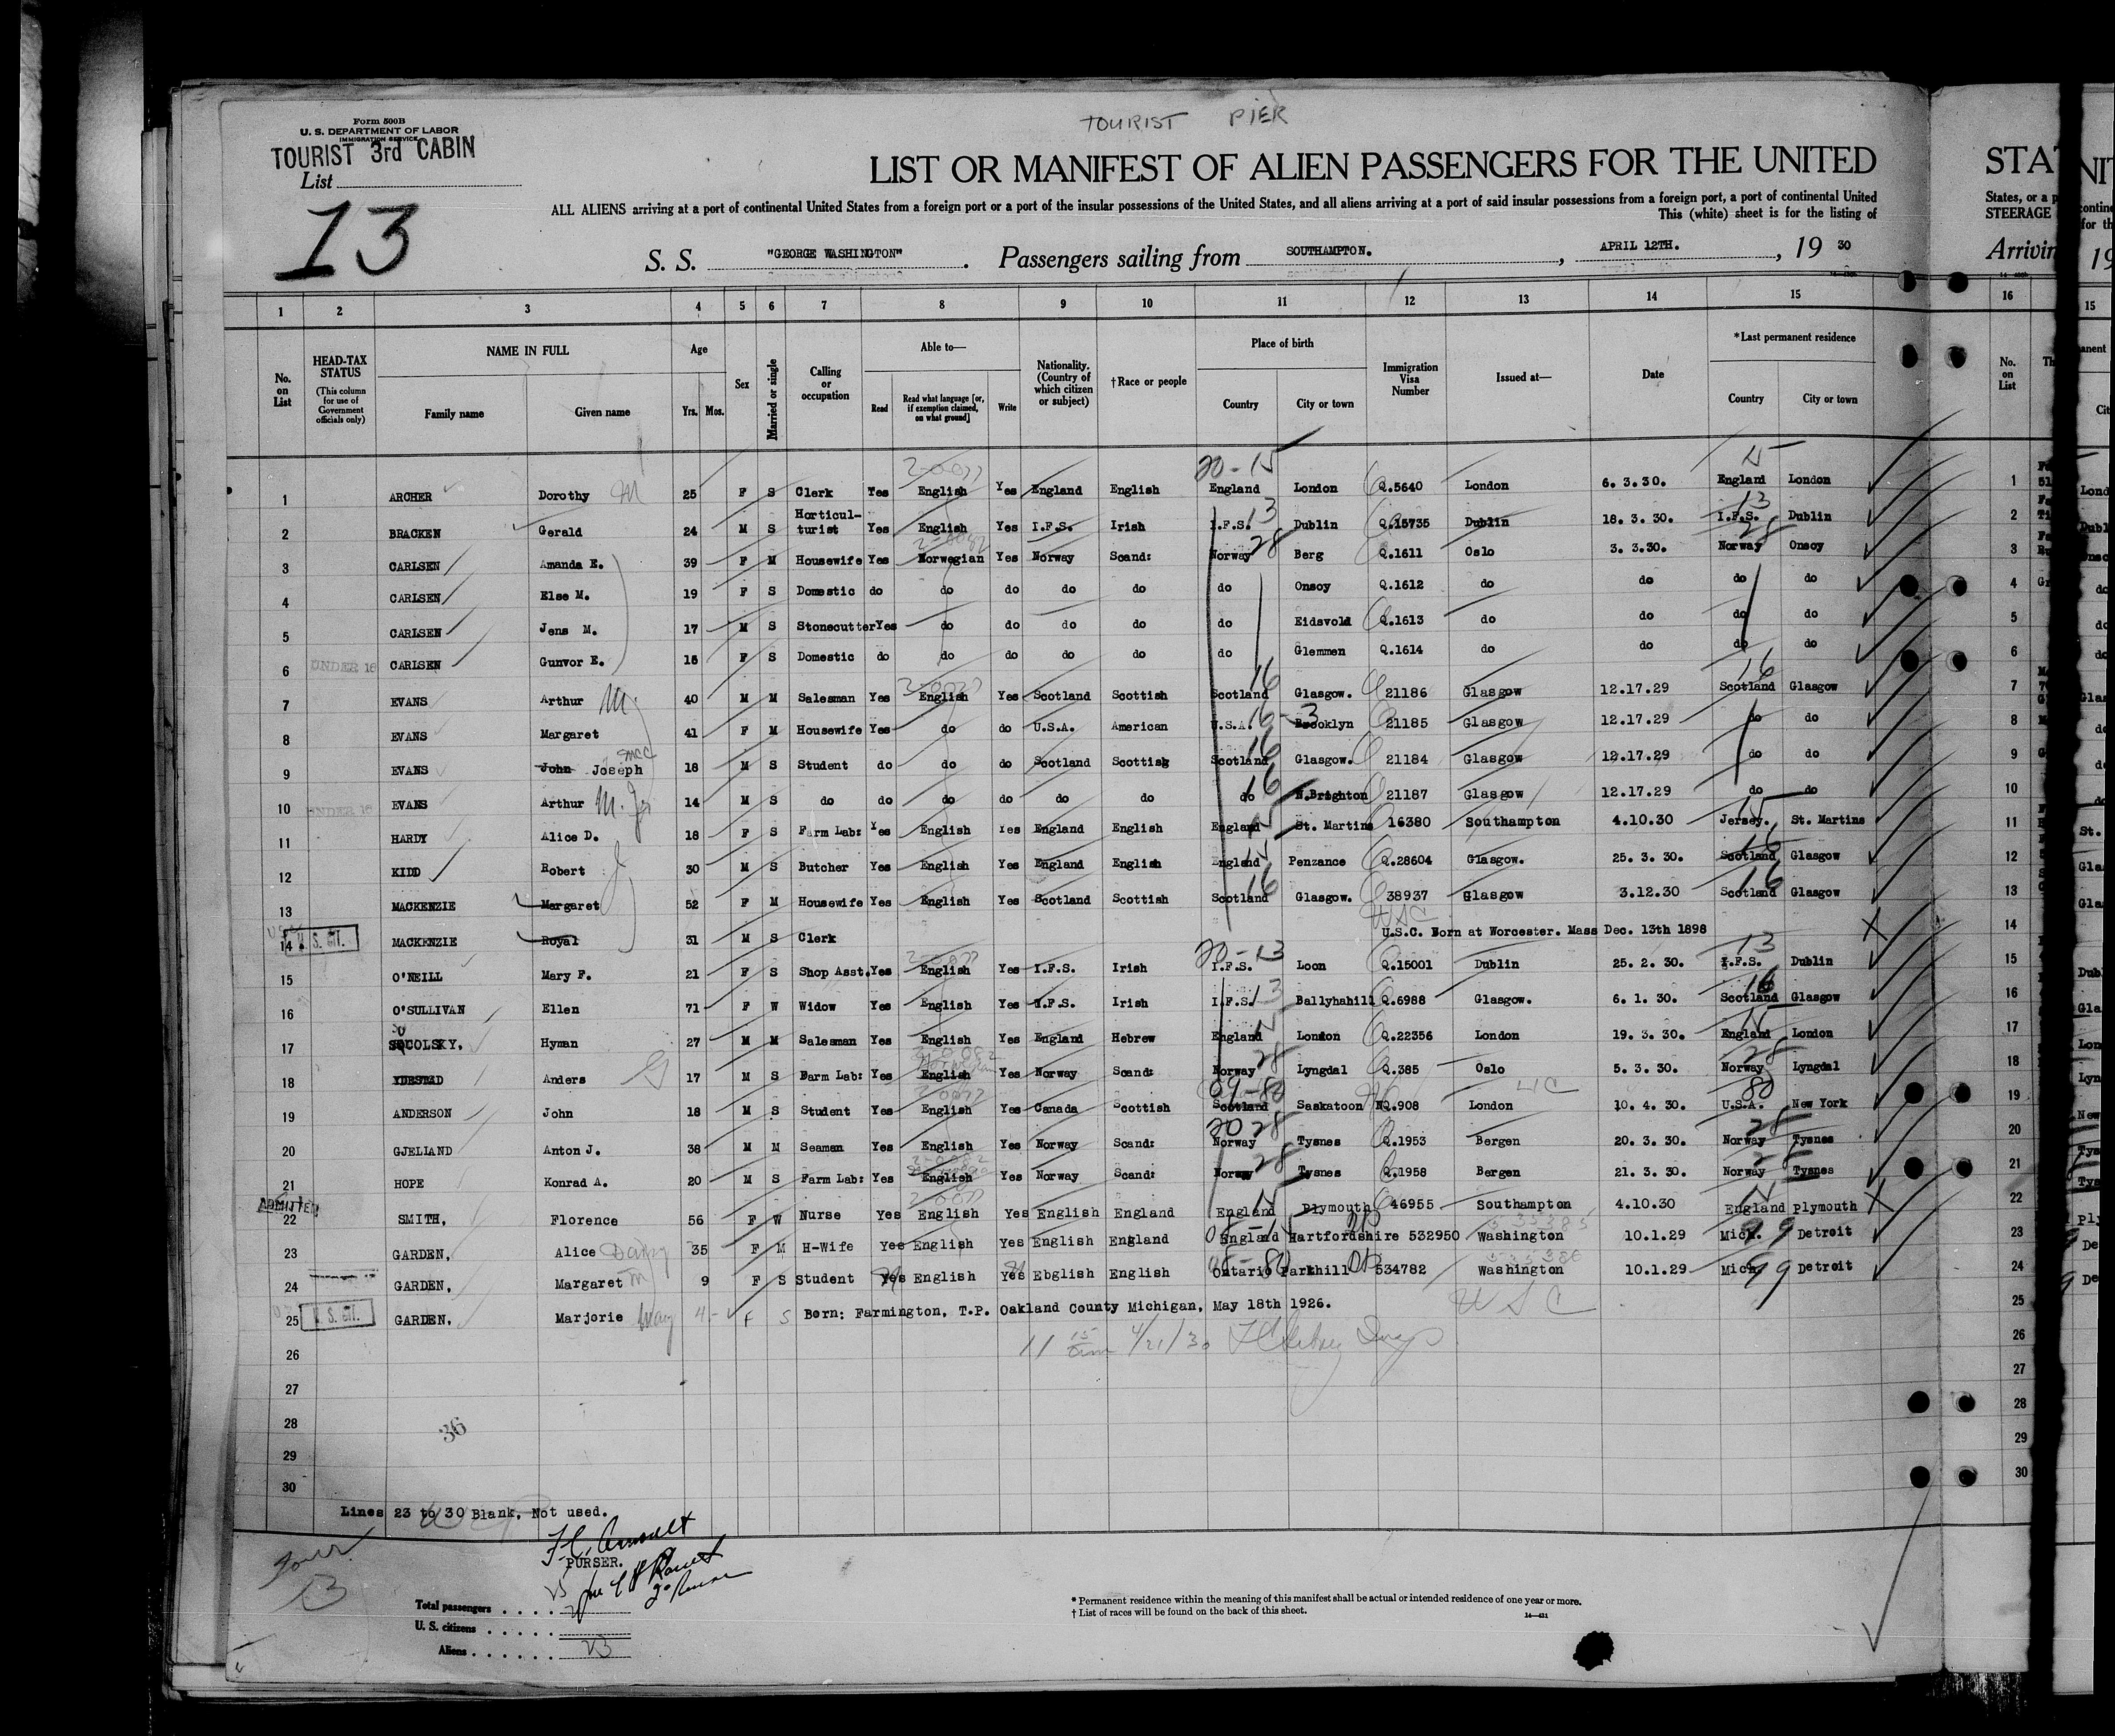 TOURIST PIER
Form 500B
U. S. DEPARTMENT OF LABOR
IMMIGRATION SERVICE
TOURIST 3rd CABIN
List
13
LIST OR MANIFEST OF ALIEN PASSENGERS FOR THE UNITED
ALL ALIENS arriving at a port of continental United States from a foreign port or a port of the insular possessions of the United States, and all aliens arriving at a port of said insular possessions from a foreign port, a port of continental United
This (white) sheet is for the listing of
S. S. "GEORGE WASHINGTON". Passengers sailing from SOUTHAMPTON., APRIL 12TH., 19 30
1 2 3 4 5 6 7 8 9 10 11 12 13 14 15
No. on List
HEAD-TAX STATUS
(This column for use of Government officials only)
NAME IN FULL
Family name Given name
Age
Yrs. Mos.
Sex
Married or single
Calling or occupation
Able to—
Read Read what language [or, if exemption claimed, on what ground] Write
Nationality. (Country of which citizen or subject)
†Race or people
Place of birth
Country City or town
Immigration Visa Number
Issued at—
Date
*Last permanent residence
Country City or town
1 ARCHER Dorothy M 25 F S Clerk Yes English Yes England English England London Q.5640 London 6. 3. 30. England London
2 BRACKEN Gerald 24 M S Horticul-turist Yes English Yes I.F.S. Irish I.F.S. Dublin Q.15735 Dublin 18. 3. 30. I.F.S. Dublin
3 CARLSEN Amanda E. 39 F M Housewife Yes Norwegian Yes Norway Scand: Norway Berg Q.1611 Oslo 3. 3.30. Norway Onsoy
4 CARLSEN Else M. 19 F S Domestic do do do do do do Onsoy Q.1612 do do do do
5 CARLSEN Jens M. 17 M S Stonecutter Yes do do do do do Eidsvold Q.1613 do do do do
6 UNDER 16 CARLSEN Gunvor E. 15 F S Domestic do do do do do do Glemmen Q.1614 do do do do
7 EVANS Arthur M. 40 M M Salesman Yes English Yes Scotland Scottish Scotland Glasgow. 21186 Glasgow 12.17.29 Scotland Glasgow
8 EVANS Margaret 41 F M Housewife Yes do do U.S.A. American U.S.A. Brooklyn 21185 Glasgow 12.17.29 do do
9 EVANS John Joseph 18 M S Student do do do Scotland Scottisg Scotland Glasgow. 21184 Glasgow 12.17.29 do do
10 UNDER 16 EVANS Arthur M. Jr 14 M S do do do do do do do N.Brighton 21187 Glasgow 12.17.29 do do
11 HARDY Alice D. 18 F S Farm Lab: Yes English Yes England English England St. Martins 16380 Southampton 4.10.30 Jersey. St. Martins
12 KIDD Robert J 30 M S Butcher Yes English Yes England English England Penzance Q.28604 Glasgow. 25. 3. 30. Scotland Glasgow
13 MACKENZIE Margaret 52 F M Housewife Yes English Yes Scotland Scottish Scotland Glasgow. 38937 Glasgow 3.12.30 Scotland Glasgow
14 U. S. CIT. MACKENZIE Royal 31 M S Clerk U.S.C. Born at Worcester. Mass Dec. 13th 1898
15 O'NEILL Mary F. 21 F S Shop Asst. Yes English Yes I.F.S. Irish I.F.S. Loon Q.15001 Dublin 25. 2. 30. I.F.S. Dublin
16 O'SULLIVAN Ellen 71 F W Widow Yes English Yes I.F.S. Irish I.F.S. Ballyhahill Q.6988 Glasgow. 6. 1. 30. Scotland Glasgow
17 SOCOLSKY. Hyman 27 M M Salesman Yes English Yes England Hebrew England London Q.22356 London 19. 3. 30. England London
18 YDESTAD Anders 17 M S Farm Lab: Yes English Yes Norway Scand: Norway Lyngdal Q.385 Oslo 5. 3. 30. Norway Lyngdal
19 ANDERSON John 18 M S Student Yes English Yes Canada Scottish Scotland Saskatoon NQ.908 London 10. 4. 30. U.S.A. New York
20 GJELLAND Anton J. 38 M M Seaman Yes English Yes Norway Scand: Norway Tysnes Q.1953 Bergen 20. 3. 30. Norway Tysnes
21 HOPE Konrad A. 20 M S Farm Lab: Yes English Yes Norway Scand: Norway Tysnes Q.1958 Bergen 21. 3. 30. Norway Tysnes
ADMITTED
22 SMITH, Florence 56 F W Nurse Yes English Yes English England England Plymouth 46955 Southampton 4.10.30 England Plymouth
23 GARDEN, Alice Daisy 35 F M H-Wife Yes English Yes English England England Hartfordshire 532950 Washington 10.1.29 Mich. Detroit
24 GARDEN, Margaret M 9 F S Student Yes English Yes Ebglish English Ontario Parkhill 534782 Washington 10.1.29 Mich. Detroit
25 U. S. CIT. GARDEN, Marjorie May 4 F S Born: Farmington, T.P. Oakland County Michigan, May 18th 1926. USC
26
27
28
29
30
36
Lines 23 to 30 Blank, Not used.
PURSER.
13
Total passengers
U. S. citizens
Aliens 23
* Permanent residence within the meaning of this manifest shall be actual or intended residence of one year or more.
† List of races will be found on the back of this sheet.